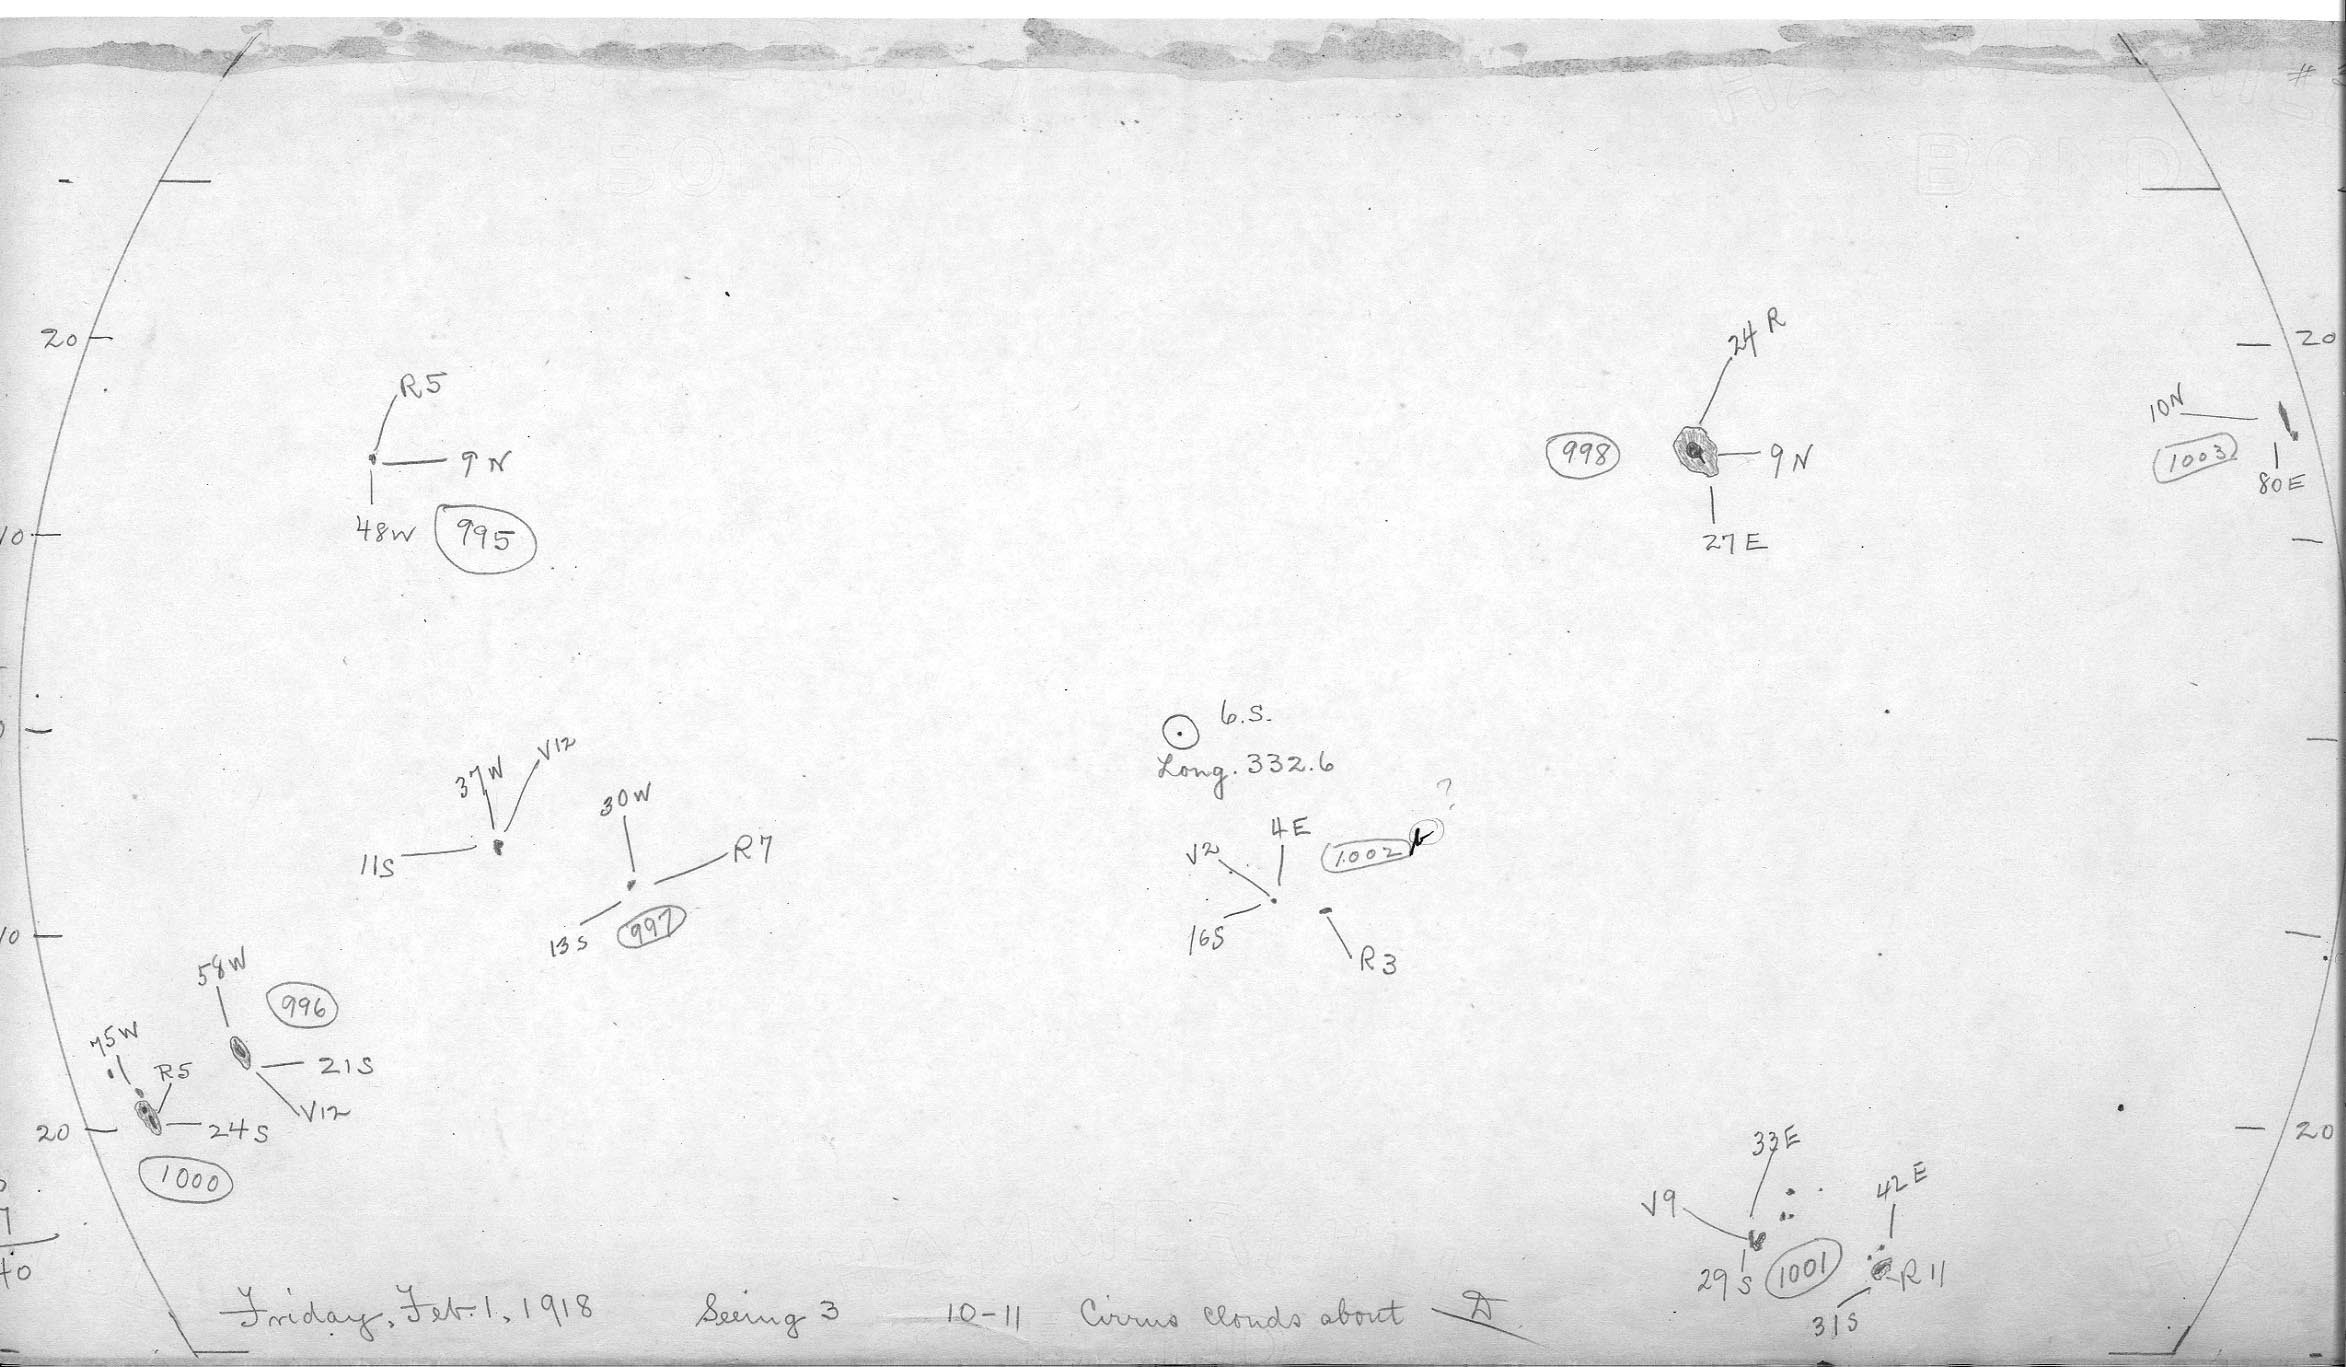 #
20
20
24 R
R5
10N
9 N
998
9 N
1003
80E
48W
995
27E
10
6.S.
Long. 332.6
37W
V12
30W
4E
?
11S
R7
V2
1002
13S
997
16S
R3
10
58W
996
75W
R5
21S
V12
20
24S
20
33E
1000
42E
V9
29S
1001
R11
40
31S
Friday, Feb. 1, 1918 Seeing 3 10-11 Cirrus clouds about
HAMMERMILL
BOND
BOND